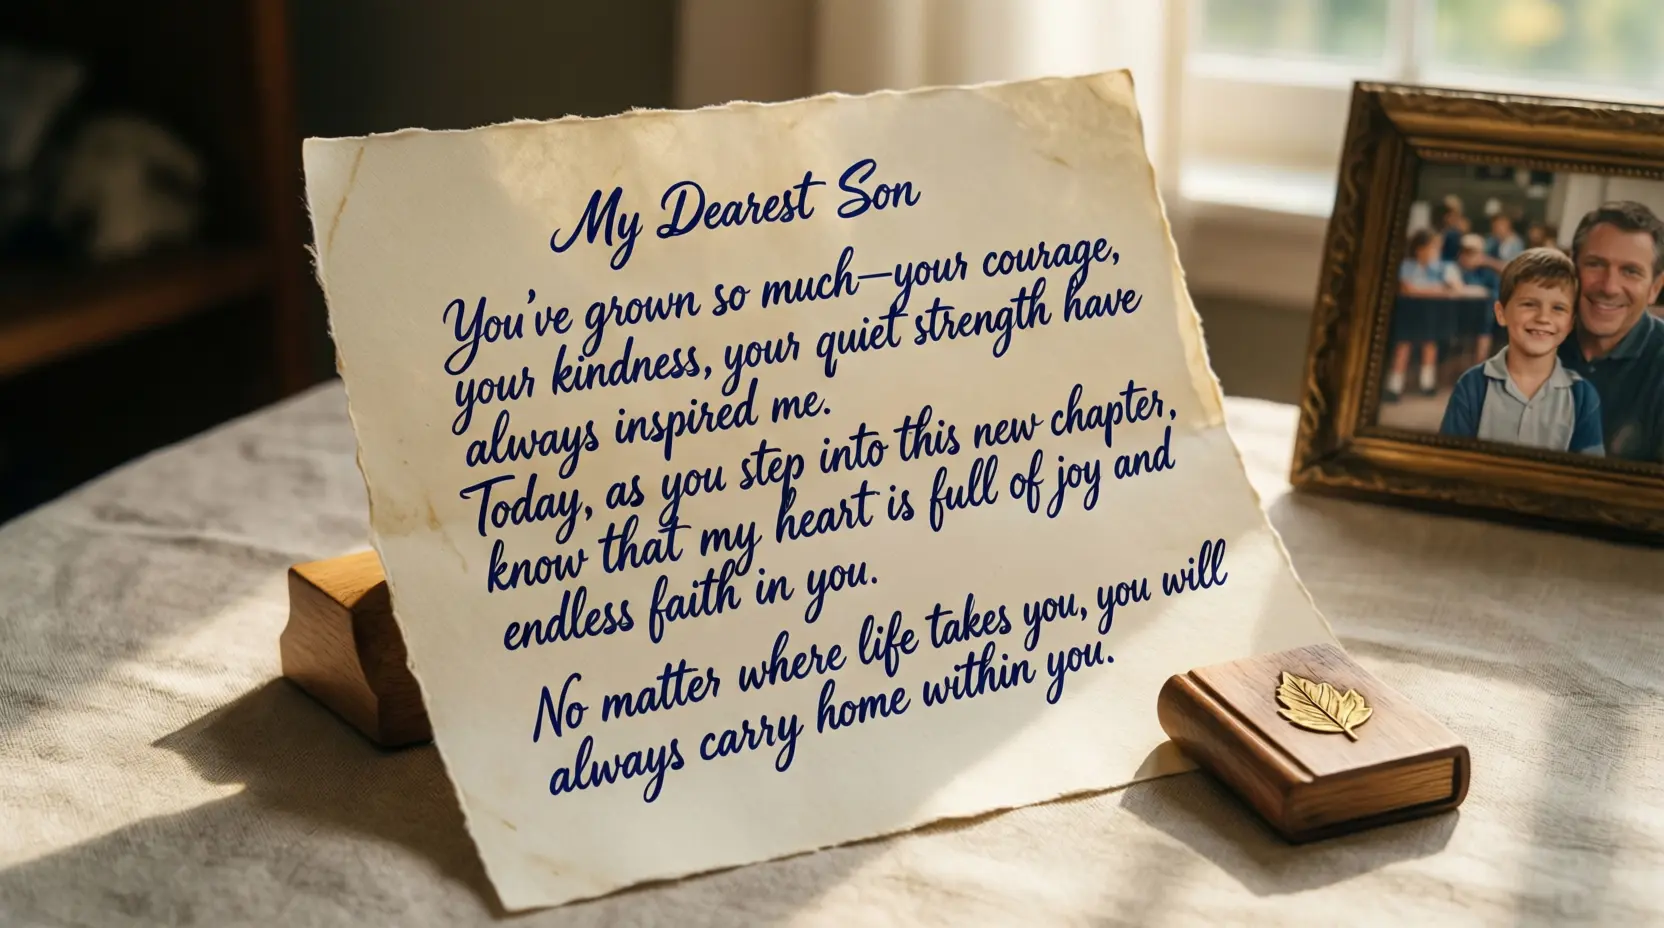 My Dearest Son
You've grown so much—your courage,
your kindness, your quiet strength have
always inspired me.
Today, as you step into this new chapter,
know that my heart is full of joy and
endless faith in you.
No matter where life takes you, you will
always carry home within you.